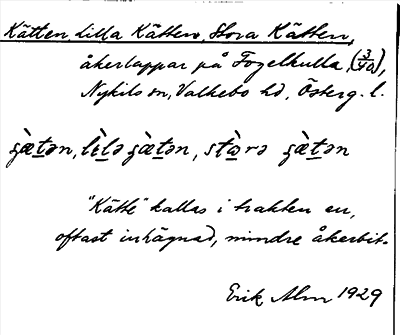 Kätten Lilla Kätten, Stora Kätten,
åkerlappar på Fogelkulla, (3/40),
Nykils sn, Valkebo hd, Österg. l.
gæ̀tən, lìlə gæ̀tən, stɷ̀rə gæ̀tən
"Kätte" kallas i trakten en,
oftast inhägnad, mindre åkerbit.
Erik Alm 1929